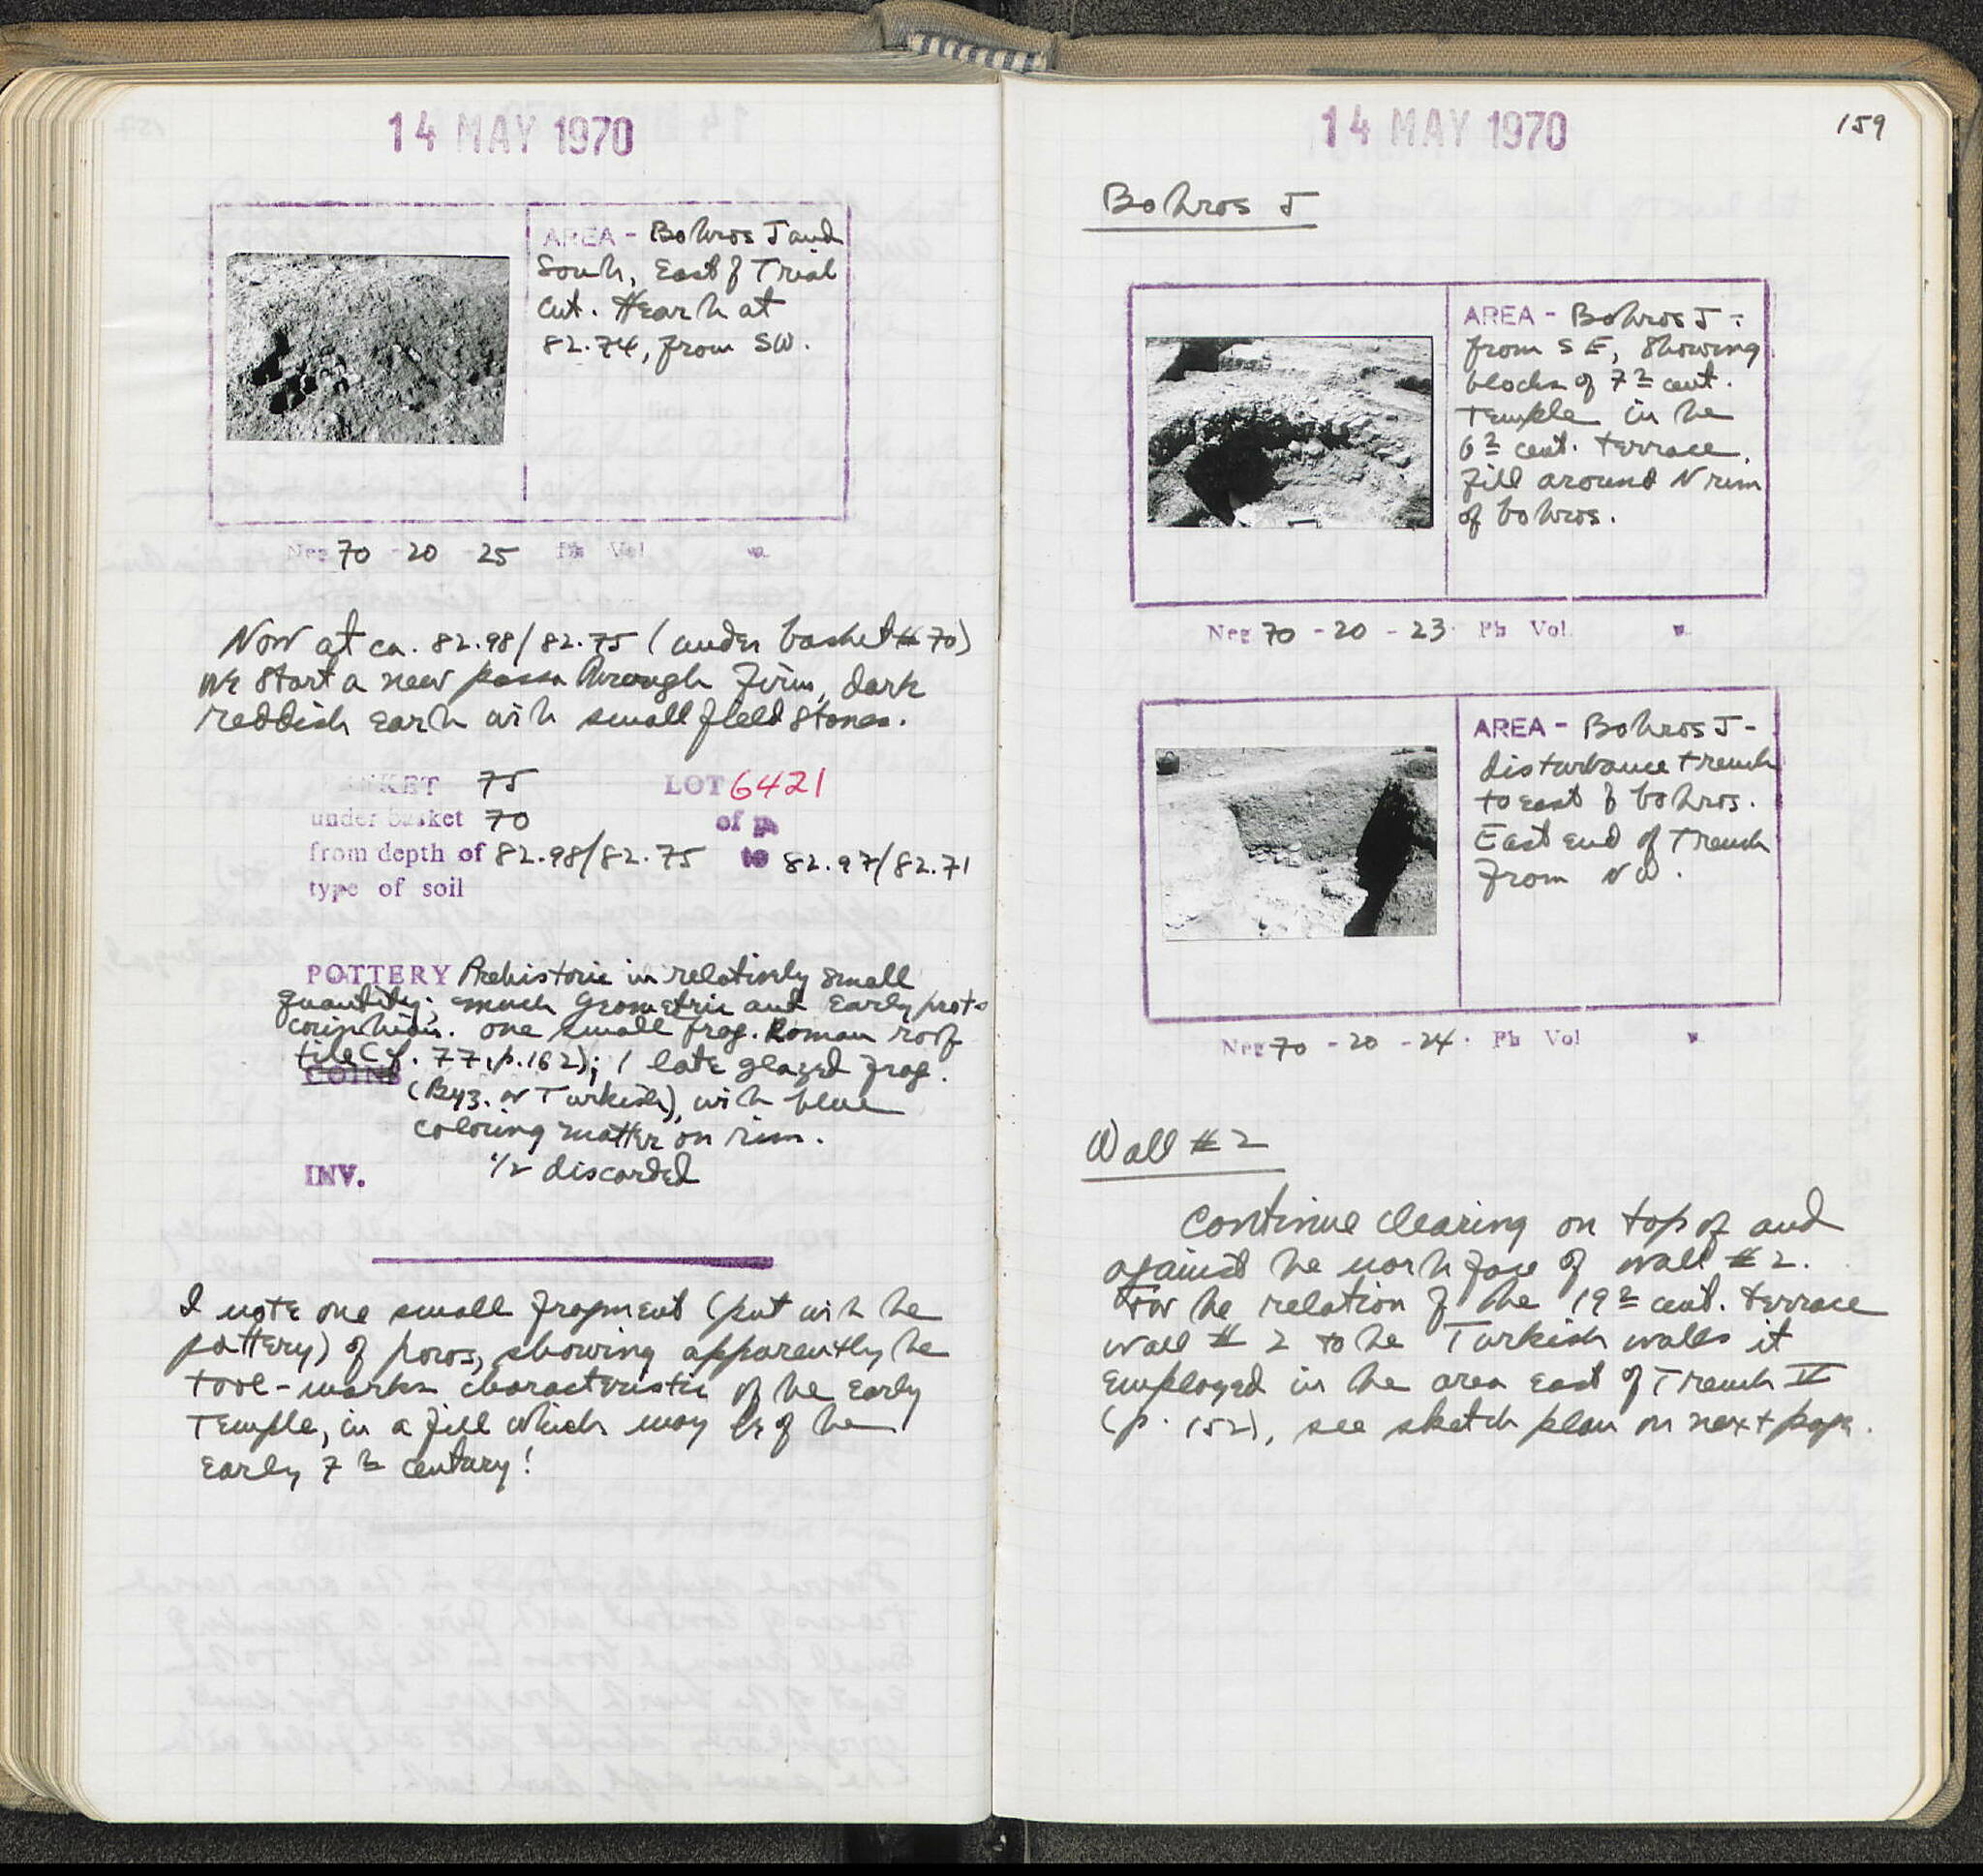 14 MAY 1970
AREA - Bothros J and
South, East of Trial
Cut. Hearth at
82.74, from SW.
Neg 70 - 20 - 25 Ph Vol p.
Now at ca. 82.98/82.75 (under basket #70)
we start a new pass through firm, dark
reddish earth with small field stones.
BASKET 75 LOT 6421
under basket 70 of p.
from depth of 82.98/82.75 to 82.97/82.71
type of soil
POTTERY Prehistoric in relatively small
quantity; much Geometric and Early proto
corinthian. one small frag. Roman roof
tile (cf. 77, p. 162); 1 late glazed frag.
COINS
(Byz. or Turkish), with blue
coloring matter on rim.
INV. 1/2 discarded
I note one small fragment (put with the
pottery) of poros, showing apparently the
tool-marks characteristic of the Early
Temple, in a fill which may be of the
early 7th century!
14 MAY 1970
159
Bothros J
AREA - Bothros J -
from SE, showing
blocks of 7th cent.
Temple in the
6th cent. terrace
fill around N rim
of bothros.
Neg 70 - 20 - 23 Ph Vol. p.
AREA - Bothros J -
disturbance trench
to east of bothros.
East end of Trench
from NW.
Neg 70 - 20 - 24 Ph Vol p.
Wall #2
Continue clearing on top of and
against the north face of wall #2.
For the relation of the 19th cent. terrace
wall #2 to the Turkish walls it
employed in the area east of Trench II
(p. 152), see sketch plan on next page.